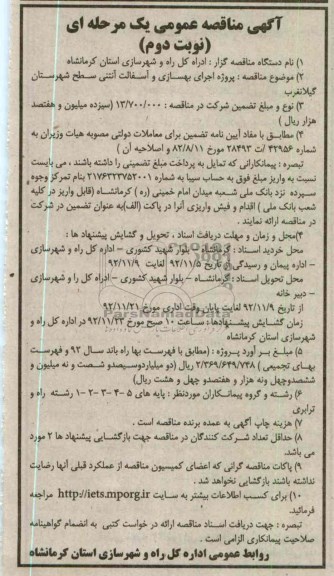 آگهی مناقصه عمومی یک مرحله ای
(نوبت دوم)
۱) نام دستگاه مناقصه گزار : اداره کل راه و شهرسازی استان کرمانشاه
۲) موضوع مناقصه : پروژه اجرای بهسازی و آسفالت آنتنی سطح شهرستان
گیلانغرب
۳) نوع و مبلغ تضمین شرکت در مناقصه : ۱۳/۷۰۰/۰۰۰ (سیزده میلیون و هفتصد
هزار ریال )
۴) مطابق با مفاد آیین نامه تضمین برای معاملات دولتی مصوبه هیات وزیران به
شماره ۴۲۹۵۶ /ت ۲۸۴۹۳ مورخ ۸۲/۸/۱۱ و اصلاحیه آن )
تبصره : پیمانکارانی که تمایل به پرداخت مبلغ تضمینی را داشته باشند ، می بایست
نسبت به واریز مبلغ فوق به حساب سیبا به شماره ۲۱۷۶۲۳۳۷۵۲۰۰۱ بنام تمرکز وجوه
سپرده نزد بانک ملی شعبه میدان امام خمینی (ره ) کرمانشاه (قابل واریز در کلیه
شعب بانک ملی ) اقدام و فیش واریزی آنرا در پاکت (الف)به عنوان تضمین در شرکت
در مناقصه ارائه نمایند .
۴)محل و زمان و مهلت دریافت اسناد ، تحویل و گشایش پیشنهاد ها :
محل خرید اسناد : کرمانشاه – بلوار شهید کشوری – اداره کل راه و شهرسازی
– اداره پیمان و رسیدگی از تاریخ ۹۲/۱۱/۵ لغایت ۹۲/۱۱/۹
محل تحویل اسناد : کرمانشاه – بلوار شهید کشوری – اداره کل را و شهرسازی
– دبیر خانه
از تاریخ ۹۲/۱۱/۹ لغایت پایان وقت اداری مورخ ۹۲/۱۱/۲۱
زمان گشایش پیشنهادها : ساعت ۱۰ صبح مورخ ۹۲/۱۱/۲۳ در اداره کل راه و
شهرسازی استان کرمانشاه
۵) مبلغ بر آورد پروژه : (مطابق با فهرست بها راه باند سال ۹۳ و فهرست
بهای تجمیعی ) ۲/۳۶۹/۶۴۹/۷۴۸ ریال (دو میلیاردوسیصدو شصت و نه میلیون و
ششصدوچهل ونه هزار و هفتصدو چهل و هشت ریال)
۶) رشته و گروه پیمانکاران موردنظر : پایه های ۵ -۴ -۳ -۲ -۱ رشته راه و
ترابری
۷) هزینه چاپ آگهی به عمده برنده مناقصه است .
۸) حداقل تعداد شرکت کنندگان در مناقصه جهت بازگشایی پیشنهاد ها ۲ مورد
می باشد.
۹) پاکات مناقصه گرانی که اعضای کمیسیون مناقصه از عملکرد قبلی آنها رضایت
نداشته باشند بازگشایی نخواهد شد .
۱۰) برای کسب اطلاعات بیشتر به سایت http://iets.mporg.ir مراجعه
فرمائید.
تبصره : جهت دریافت اسناد مناقصه ارائه در خواست کتبی به انضمام گواهینامه
صلاحیت پیمانکاری الزامی است .
روابط عمومی اداره کل راه و شهرسازی استان کرمانشاه